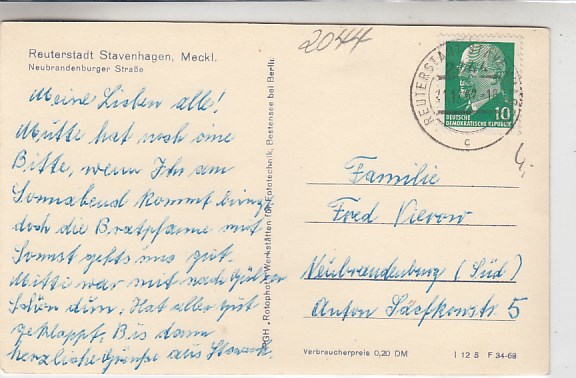 Reuterstadt Stavenhagen, Meckl.
Neubrandenburger Straße
Meine Lieben alle!
Mutti hat noch eine
Bitte, wenn Ihr am
Sonnabend kommt bringt
doch die Bratpfanne mit
Sonst gehts uns gut.
Mutti war mit nach
schon dum. Hat alles gut
geklappt. Bis dann
herzliche Grüße aus Stavenh.
PGH „Rotophot“, Werkstätten für Fototechnik, Bestensee bei Berlin
2044
REUTERSTADT
2044
c
10
DEUTSCHE
DEMOKRATISCHE REPUBLIK
4,-
Familie
Fred Vierow
Neubrandenburg (Süd)
Anton 5
Verbraucherpreis 0,20 DM
I 12 8 F 34-68